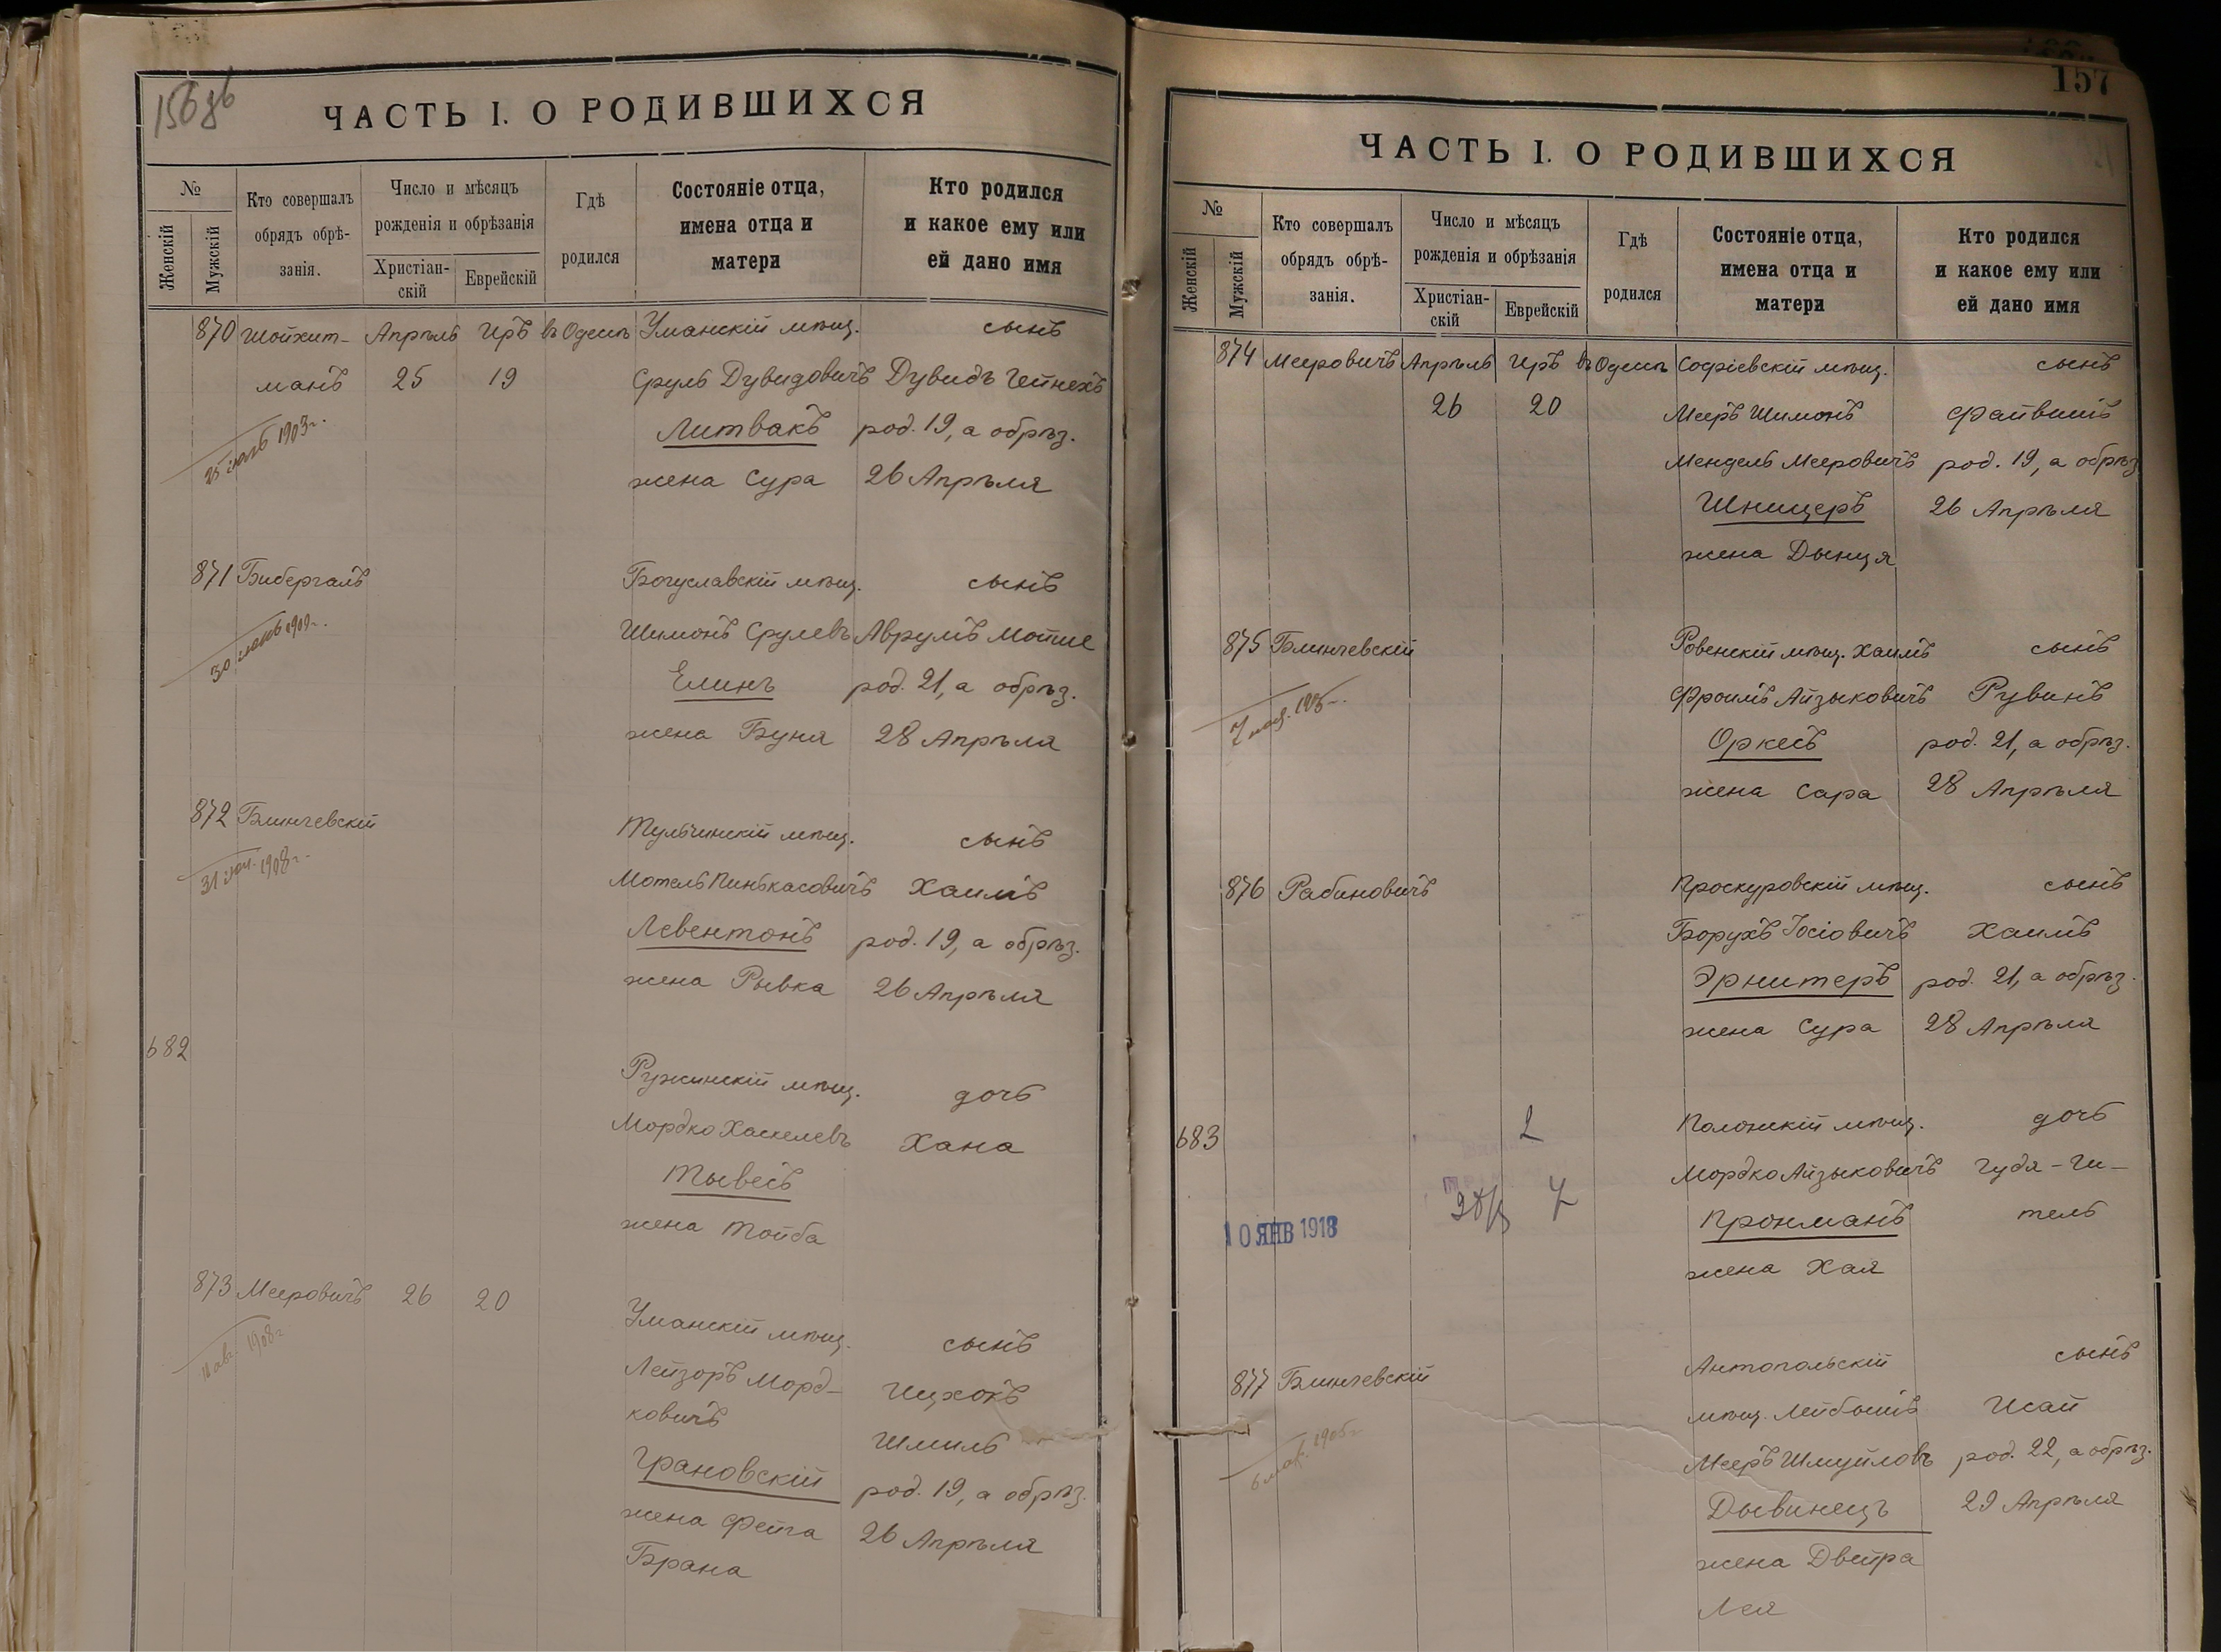 156 об
ЧАСТЬ I. О РОДИВШИХСЯ
№
Женскій
Мужскій
Кто совершалъ
обрядъ обрѣ-
занія.
Число и мѣсяцъ
рожденія и обрѣзанія
Христіан-
скій
Еврейскій
Гдѣ
родился
Состояніе отца,
имена отца и
матери
Кто родился
и какое ему или
ей дано имя
870 Шойхет- Апрѣль Иръ въ Одессѣ Уманскій мѣщ. сынъ
манъ 25 19 Сруль Дувидовичъ Дувидъ Гейнехъ
Литвакъ род. 19, а обрѣз.
1903 г.
жена Сура 26 Апрѣля
871 Бибергалъ Богуславскій мѣщ. сынъ
Шимонъ Срулевъ Аврумъ Мотие
30
Елинъ род. 21, а обрѣз.
жена Буня 28 Апрѣля
872 Блинчевскій Тульчинскій мѣщ. сынъ
31 1908 г.
Мотель Пинькасовичъ Хаимъ
Левентонъ род. 19, а обрѣз.
жена Рывка 26 Апрѣля
682
Ружинскій мѣщ. дочь
Мордко Хаскелевъ Хана
Тывесъ
жена Тойба
873 Мееровичъ 26 20
Уманскій мѣщ. сынъ
авг 1908 г.
Лейзоръ Морд- Ицхокъ
ковичъ Шмиль
Грановскій род. 19, а обрѣз.
жена Фейга 26 Апрѣля
Брана
157
ЧАСТЬ I. О РОДИВШИХСЯ
№
Женскій
Мужскій
Кто совершалъ
обрядъ обрѣ-
занія.
Число и мѣсяцъ
рожденія и обрѣзанія
Христіан-
скій
Еврейскій
Гдѣ
родился
Состояніе отца,
имена отца и
матери
Кто родился
и какое ему или
ей дано имя
874 Мееровичъ Апрѣль Иръ въ Одессѣ Софіевскій мѣщ. сынъ
26 20 Мееръ Шимонъ Файвишъ
Мендель Мееровичъ род. 19, а обрѣз
Шницеръ 26 Апрѣля
жена Дынця
875 Блинчевскій Ровенскій мѣщ. Хаимъ сынъ
Фроимъ Айзыковичъ Рувинъ
7
Оркесъ род. 21, а обрѣз.
жена Сара 28 Апрѣля
876 Рабиновичъ Проскуровскій мѣщ. сынъ
Борухъ Іосіовичъ Хаимъ
Эрнитеръ род. 21, а обрѣз.
жена Сура 28 Апрѣля
683
2
Полонскій мѣщ. дочь
Мордко Айзыковичъ Гудя-Ги-
Пронманъ тель
10 ЯНВ 1918
жена Хая
877 Блинчевскій Антопольскій сынъ
мѣщ. Лейбышъ Исай
6 мар. 1905 г.
Мееръ Шмуйловъ род. 22, а обрѣз.
Дывинецъ 29 Апрѣля
жена Двейра
Лея